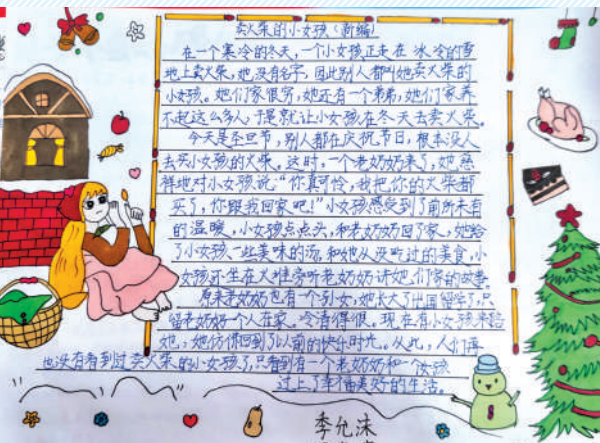 卖火柴的小女孩(新编)
在一个寒冷的冬天,一个小女孩正走在冰冷的雪
地上卖火柴,她没有名字,因此别人都叫她卖火柴的
小女孩。她们家很穷,她还有一个弟弟,她们家养
不起这么多人,于是就让小女孩在冬天去卖火柴。
今天是圣旦节,别人都在庆祝节日,根本没人
去买小女孩的火柴。这时,一个老奶奶来了,她慈
祥地对小女孩说:“你真可怜,我把你的火柴都
买了,你跟我回家吧!”小女孩感受到了前所未有
的温暖,小女孩点点头,和老奶奶回了家,她给
了小女孩一些美味的汤,和她从没吃过的美食,小
女孩还坐在火堆旁听老奶奶讲她们家的故事。
原来老奶奶也有一个孙女,她长大了出国留学了,只
留老奶奶一个人在家。冷清得很。现在有小女孩来陪
她,她仿佛回到了以前的快乐时光。从此,人们再
也没有看到过卖火柴的小女孩了,只看到有一个老奶奶和一个女孩
过上了幸福美好的生活。
李允沫